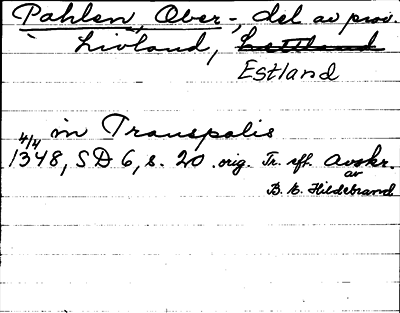 Pahlen, Ober-, del av prov.
Livland, Lettland
Estland
in Transpalis
4/4
1348, SD 6, s. 20 .orig. Tr. eft. Avskr.
av
B. E. Hildebrand